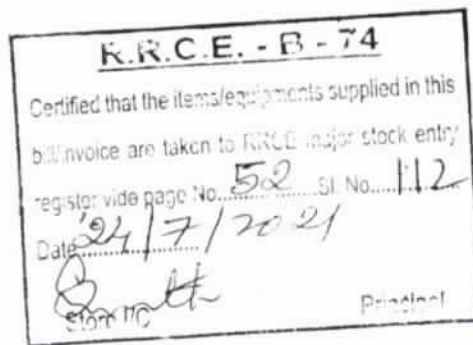 R.R.C.E. - B - 74
Certified that the items/equipments supplied in this
bill/invoice are taken to RRCE major stock entry
register vide page No. 52 Sl. No. 112
Date 24/7/2021
Store I/C Principal